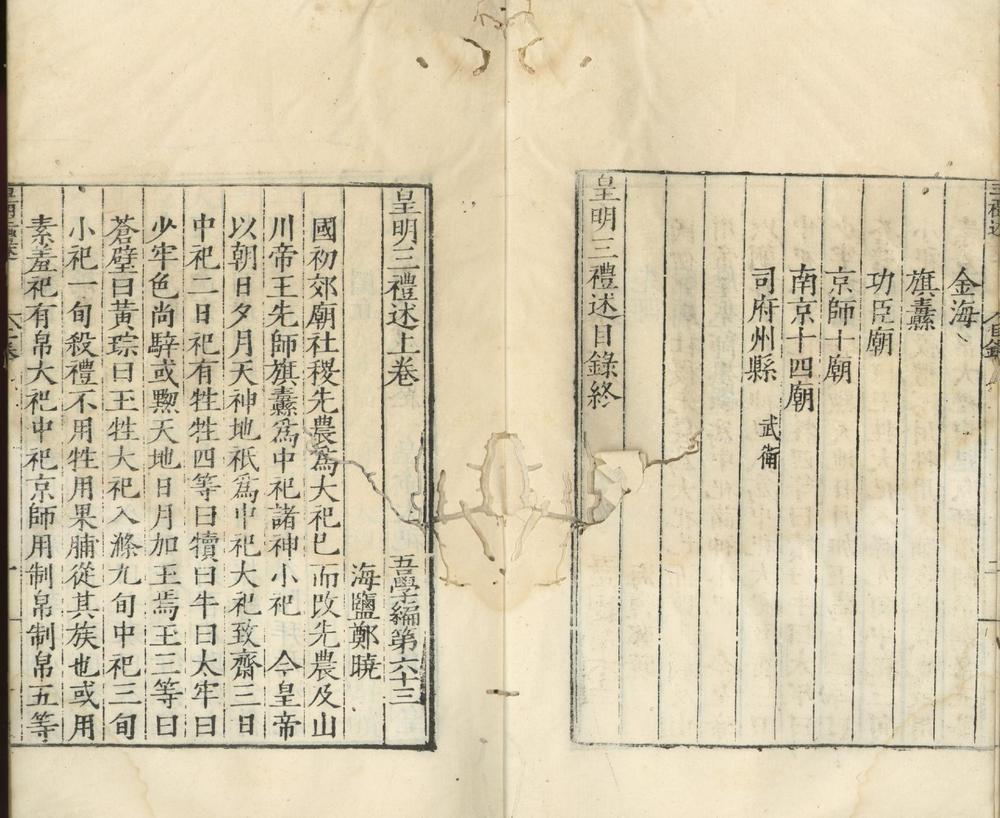 金海
旗纛
功臣廟
京師十廟
南京十四廟
司府州縣 武衞
皇明三禮述目錄終
皇明三禮述上卷 吾學編第六十三
海鹽鄭曉
國初郊廟社稷先農爲大祀已而改先農及山
川帝王先師旗纛爲中祀諸神小祀 今皇帝
以朝日夕月天神地祇爲中祀大祀致齋三日
中祀二日祀有牲牲四等曰犢曰牛曰太牢曰
少牢色尚騂或黝天地日月加玉焉玉三等曰
蒼璧曰黃琮曰玉牲大祀入滌九旬中祀三旬
小祀一旬殺禮不用牲用果脯從其族也或用
素羞祀有帛大祀中祀京師用制帛制帛五等